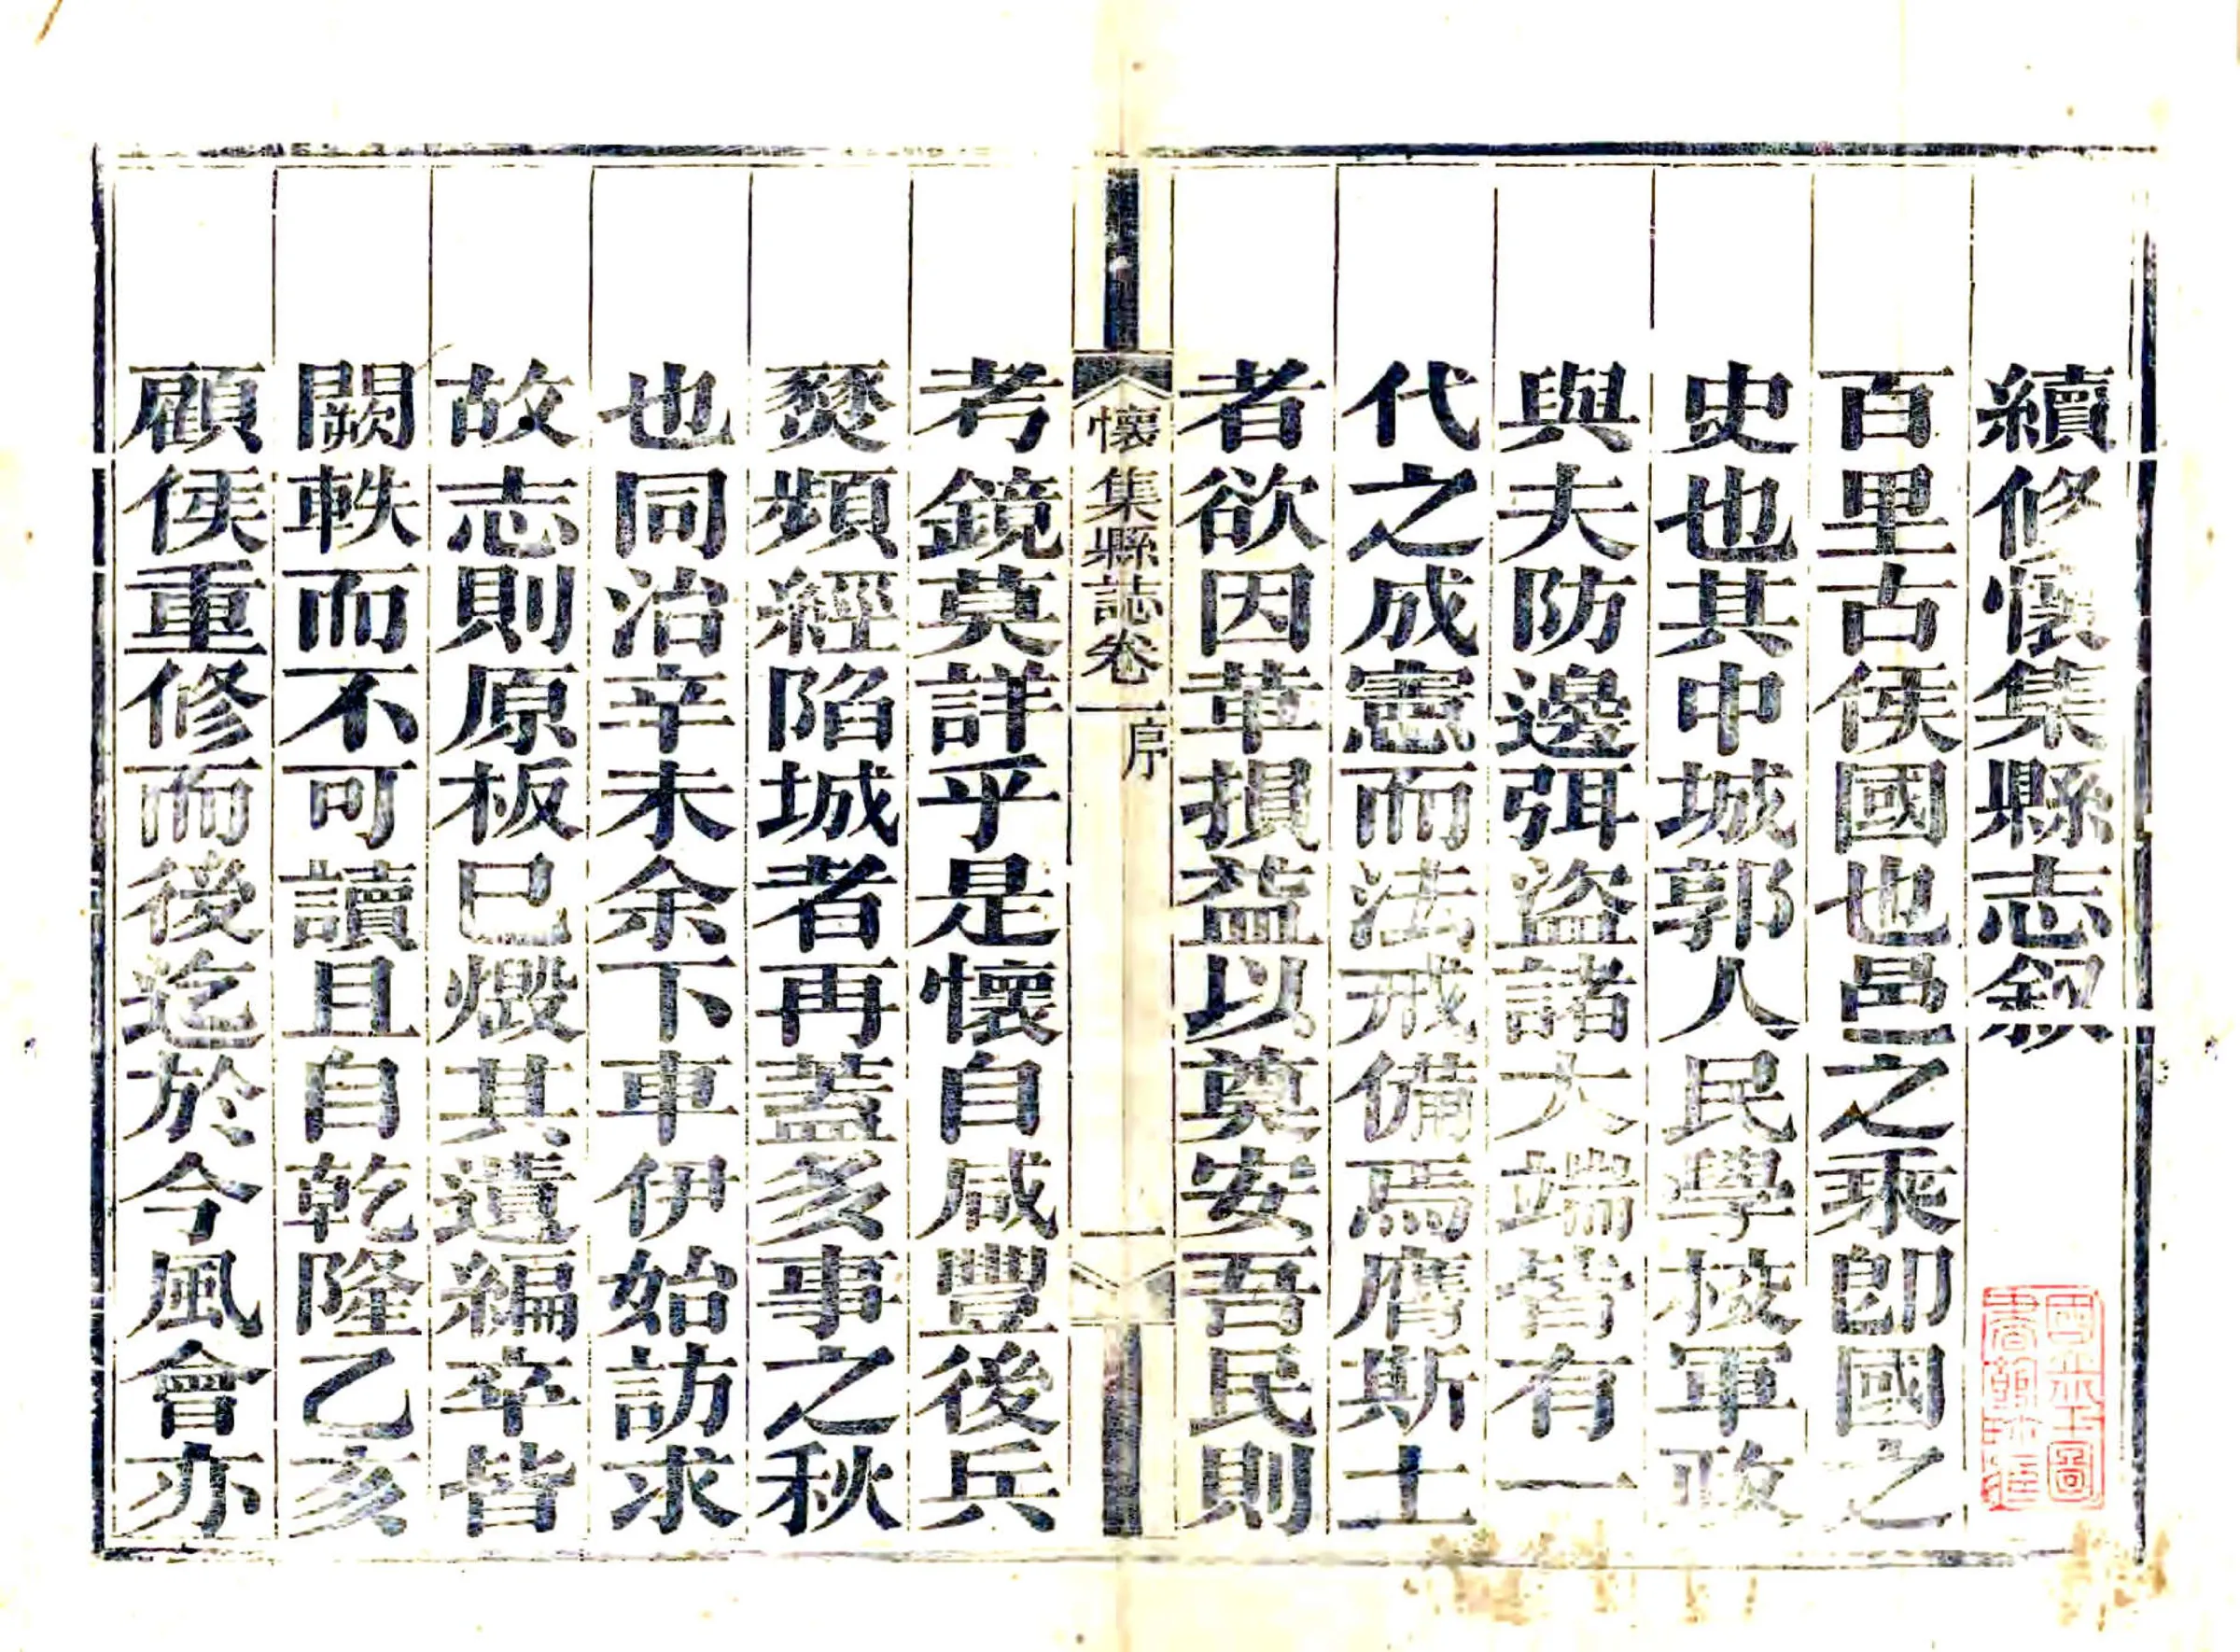 續修懷集縣志敘
百里古侯國也邑之乘卽國之
史也其中城郭人民學校軍政
與夫防邊弭盜諸大端皆有一
代之成憲而法戒備焉膺斯土
者欲因革損益以奠安吾民則
懷集縣誌卷一序 一
考鏡莫詳乎是懷自咸豐後兵
燹頻經陷城者再蓋多事之秋
也同治辛未余下車伊始訪求
故志則原板已燬其遺編卒皆
闕軼而不可讀且自乾隆乙亥
顧侯重修而後迄於今風會亦